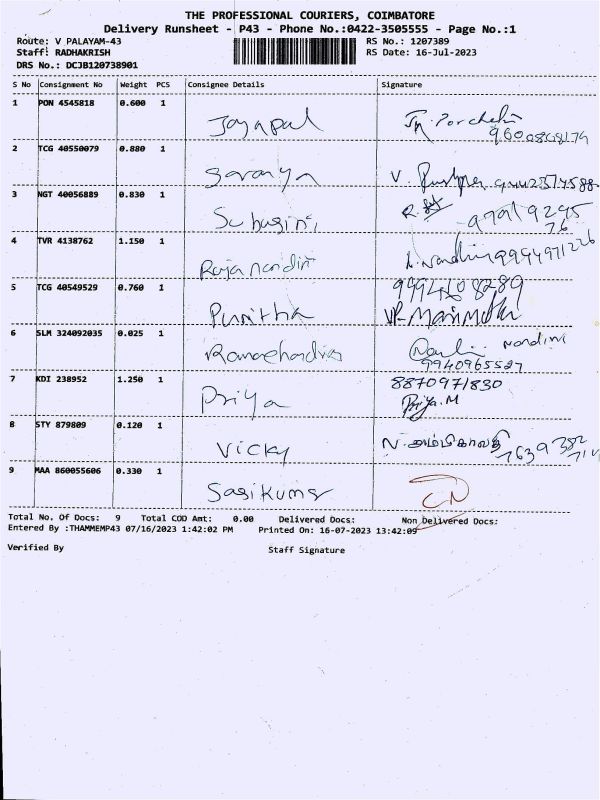 THE PROFESSIONAL COURIERS, COIMBATORE
Delivery Runsheet - P43 - Phone No.:0422-3505555 - Page No.:1
Route: V PALAYAM-43 RS No.: 1207389
Staff: RADHAKRISH RS Date: 16-Jul-2023
DRS No.: DCJB120738901
S No Consignment No Weight PCS Consignee Details Signature
1 PON 4545818 0.600 1
Jayapal
2 TCG 40550079 0.880 1
Saranya V
3 NGT 40056889 0.830 1
Suhagini
4 TVR 4138762 1.150 1
Rajanandini 9994971226
5 TCG 40549529 0.760 1 9994108289
Punitha
6 SLM 324092035 0.025 1
Ramachandra Nandini
9940965527
7 KDI 238952 1.250 1 8870971830
Priya Priya.M
8 STY 879809 0.120 1
Vicky
9 MAA 860055606 0.330 1
Sasikumar
Total No. Of Docs: 9 Total COD Amt: 0.00 Delivered Docs: Non Delivered Docs:
Entered By :THAMMEMP43 07/16/2023 1:42:02 PM Printed On: 16-07-2023 13:42:09
Verified By Staff Signature